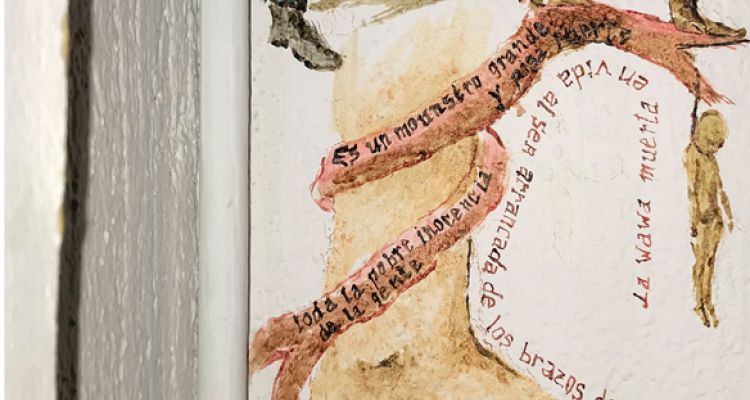 Es un mounstro grande
y pisa fuerte
toda la pobre inocencia
de la gente
La wawa muerta
en vida al ser arrancada de los brazos